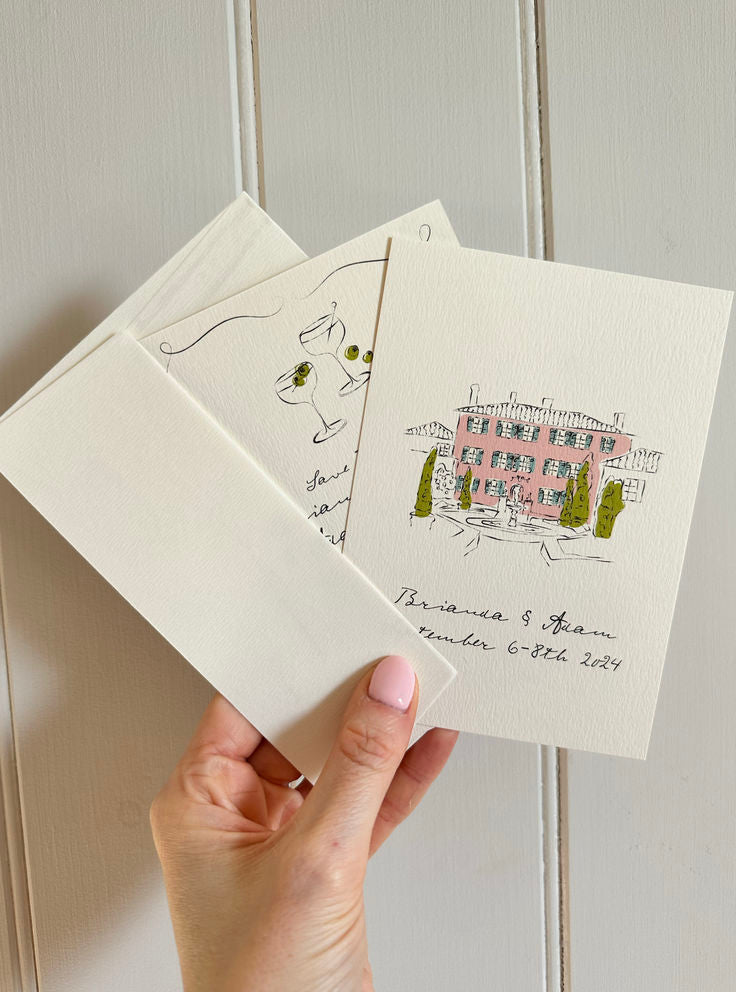 Save
ian
Brianda & Adam
tember 6-8th 2024